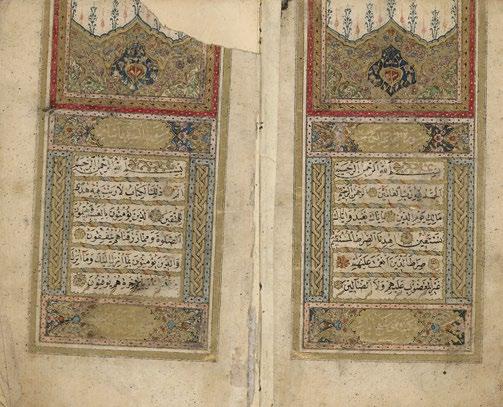 بسم الله الرحمن الرحيم
الحمد لله رب العالمين الرحمن الرحيم
مالك يوم الدين اياك نعبد واياك
نستعين اهدنا الصراط المستقيم
صراط الذين انعمت عليهم
غير المغضوب عليهم ولا الضالين
بسم الله الرحمن الرحيم
الم ذلك الكتاب لا ريب فيه هدى
للمتقين الذين يؤمنون بالغيب ويقيمون
الصلوة ومما رزقناهم ينفقون
والذين يؤمنون بما انزل اليك وما انزل
وبالآخرة هم يوقنون